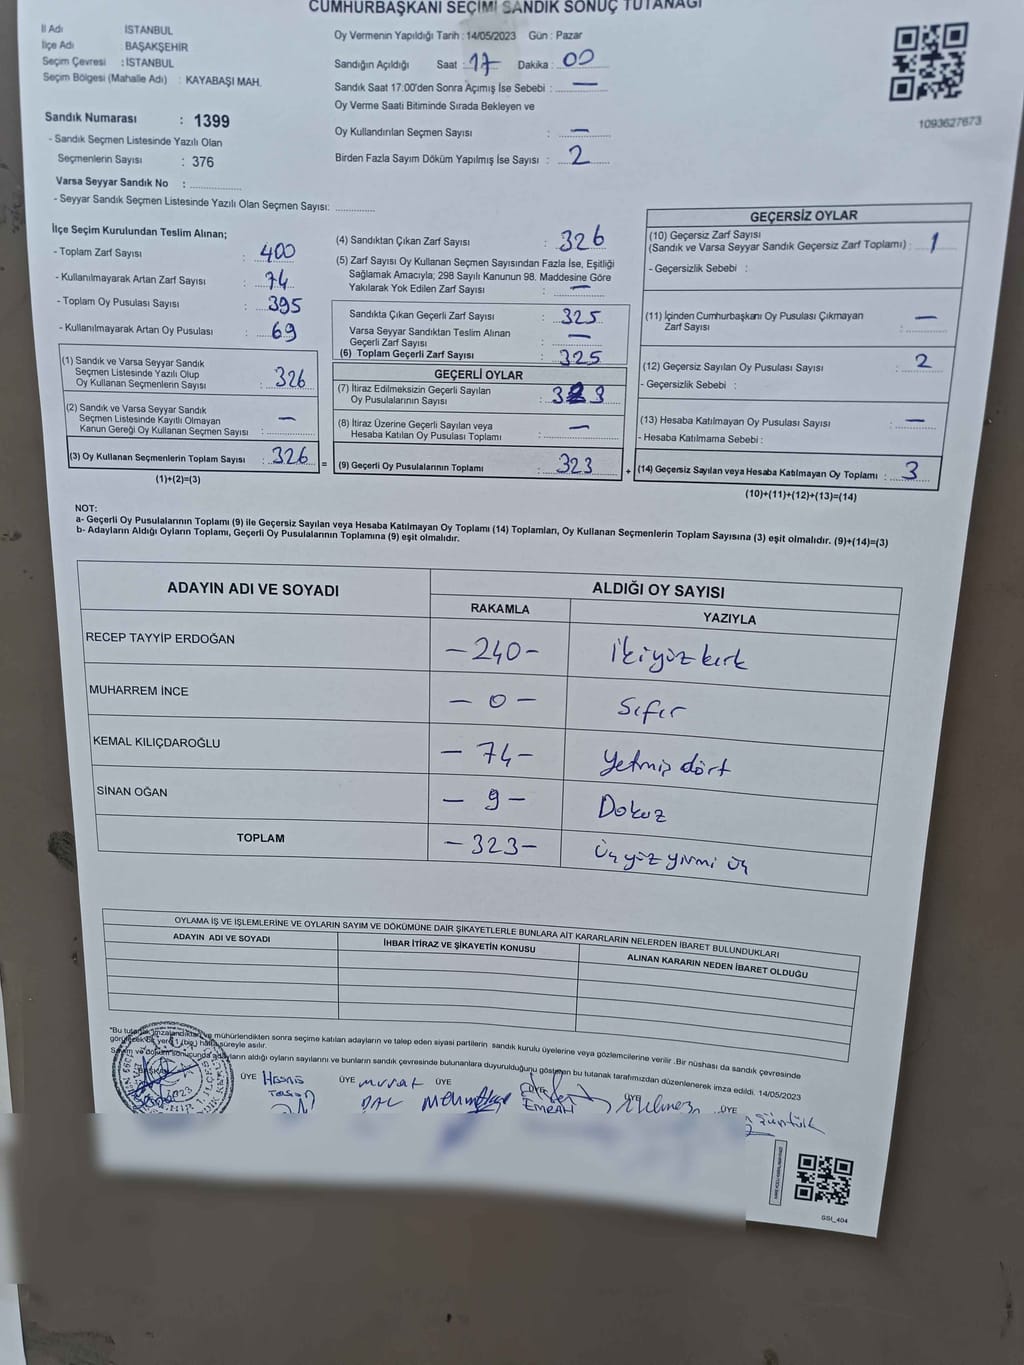 CUMHURBAŞKANI SEÇİMİ SANDIK SONUÇ TUTANAĞI
İl Adı İSTANBUL
İlçe Adı : BAŞAKŞEHİR
Seçim Çevresi : İSTANBUL
Seçim Bölgesi (Mahalle Adı) : KAYABAŞI MAH.
Sandık Numarası : 1399
- Sandık Seçmen Listesinde Yazılı Olan
Seçmenlerin Sayısı : 376
Varsa Seyyar Sandık No :
- Seyyar Sandık Seçmen Listesinde Yazılı Olan Seçmen Sayısı:
Oy Vermenin Yapıldığı Tarih : 14/05/2023 Gün : Pazar
Sandığın Açıldığı Saat : 17 Dakika : 00
Sandık Saat 17:00'den Sonra Açımış İse Sebebi : —
Oy Verme Saati Bitiminde Sırada Bekleyen ve
Oy Kullandırılan Seçmen Sayısı : —
Birden Fazla Sayım Döküm Yapılmış İse Sayısı : 2
1093627673
İlçe Seçim Kurulundan Teslim Alınan;
- Toplam Zarf Sayısı : 400
- Kullanılmayarak Artan Zarf Sayısı : 74
- Toplam Oy Pusulası Sayısı : 395
- Kullanılmayarak Artan Oy Pusulası : 69
(1) Sandık ve Varsa Seyyar Sandık
Seçmen Listesinde Yazılı Olup
Oy Kullanan Seçmenlerin Sayısı : 326
(2) Sandık ve Varsa Seyyar Sandık
Seçmen Listesinde Kayıtlı Olmayan
Kanun Gereği Oy Kullanan Seçmen Sayısı : —
(3) Oy Kullanan Seçmenlerin Toplam Sayısı : 326
(1)+(2)=(3)
(4) Sandıktan Çıkan Zarf Sayısı : 326
(5) Zarf Sayısı Oy Kullanan Seçmen Sayısından Fazla İse, Eşitliği
Sağlamak Amacıyla; 298 Sayılı Kanunun 98. Maddesine Göre
Yakılarak Yok Edilen Zarf Sayısı : —
Sandıkta Çıkan Geçerli Zarf Sayısı : 325
Varsa Seyyar Sandıktan Teslim Alınan
Geçerli Zarf Sayısı : —
(6) Toplam Geçerli Zarf Sayısı : 325
GEÇERLİ OYLAR
(7) İtiraz Edilmeksizin Geçerli Sayılan
Oy Pusulalarının Sayısı : 323
(8) İtiraz Üzerine Geçerli Sayılan veya
Hesaba Katılan Oy Pusulası Toplamı : —
= (9) Geçerli Oy Pusulalarının Toplamı : 323
GEÇERSİZ OYLAR
(10) Geçersiz Zarf Sayısı
(Sandık ve Varsa Seyyar Sandık Geçersiz Zarf Toplamı) : 1
- Geçersizlik Sebebi :
(11) İçinden Cumhurbaşkanı Oy Pusulası Çıkmayan
Zarf Sayısı : —
(12) Geçersiz Sayılan Oy Pusulası Sayısı : 2
- Geçersizlik Sebebi :
(13) Hesaba Katılmayan Oy Pusulası Sayısı : —
- Hesaba Katılmama Sebebi :
+ (14) Geçersiz Sayılan veya Hesaba Katılmayan Oy Toplamı : 3
(10)+(11)+(12)+(13)=(14)
NOT:
a- Geçerli Oy Pusulalarının Toplamı (9) ile Geçersiz Sayılan veya Hesaba Katılmayan Oy Toplamı (14) Toplamları, Oy Kullanan Seçmenlerin Toplam Sayısına (3) eşit olmalıdır. (9)+(14)=(3)
b- Adayların Aldığı Oyların Toplamı, Geçerli Oy Pusulalarının Toplamına (9) eşit olmalıdır.
ADAYIN ADI VE SOYADI ALDIĞI OY SAYISI
RAKAMLA YAZIYLA
RECEP TAYYİP ERDOĞAN - 240 - İkiyüz kırk
MUHARREM İNCE - 0 - Sıfır
KEMAL KILIÇDAROĞLU - 74 - Yetmiş dört
SİNAN OĞAN - 9 - Dokuz
TOPLAM - 323 - Üç yüz yirmi üç
OYLAMA İŞ VE İŞLEMLERİNE VE OYLARIN SAYIM VE DÖKÜMÜNE DAİR ŞİKAYETLERLE BUNLARA AİT KARARLARIN NELERDEN İBARET BULUNDUKLARI
ADAYIN ADI VE SOYADI İHBAR İTİRAZ VE ŞİKAYETİN KONUSU ALINAN KARARIN NEDEN İBARET OLDUĞU
"Bu tutanak imzalandıktan ve mühürlendikten sonra seçime katılan adayların ve talep eden siyasi partilerin sandık kurulu üyelerine veya gözlemcilerine verilir .Bir nüshası da sandık çevresinde
görülecek bir yere 1 (bir) hafta süreyle asılır.
Sayım ve döküm sonucunda adayların aldığı oyların sayılarını ve bunların sandık çevresinde bulunanlara duyurulduğunu gösteren bu tutanak tarafımızdan düzenlenerek imza edildi. 14/05/2023
BAŞKAN ÜYE ÜYE Murat ÜYE ÜYE ÜYE ÜYE
EMRAH
GSİ_404